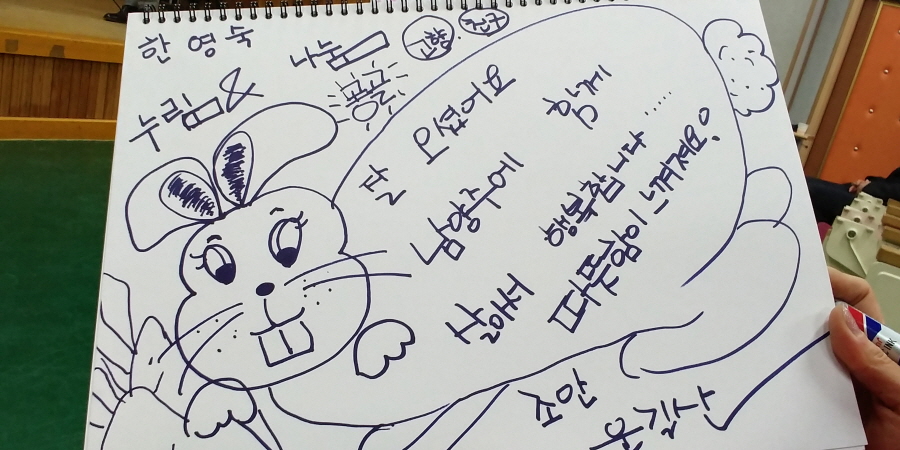 한영숙
누림&
나눔
고향.친구
잘 오셨어요
남양주에 함께
살아서 행복합니다.....
따뜻함이 느껴져요?
조안
운길산